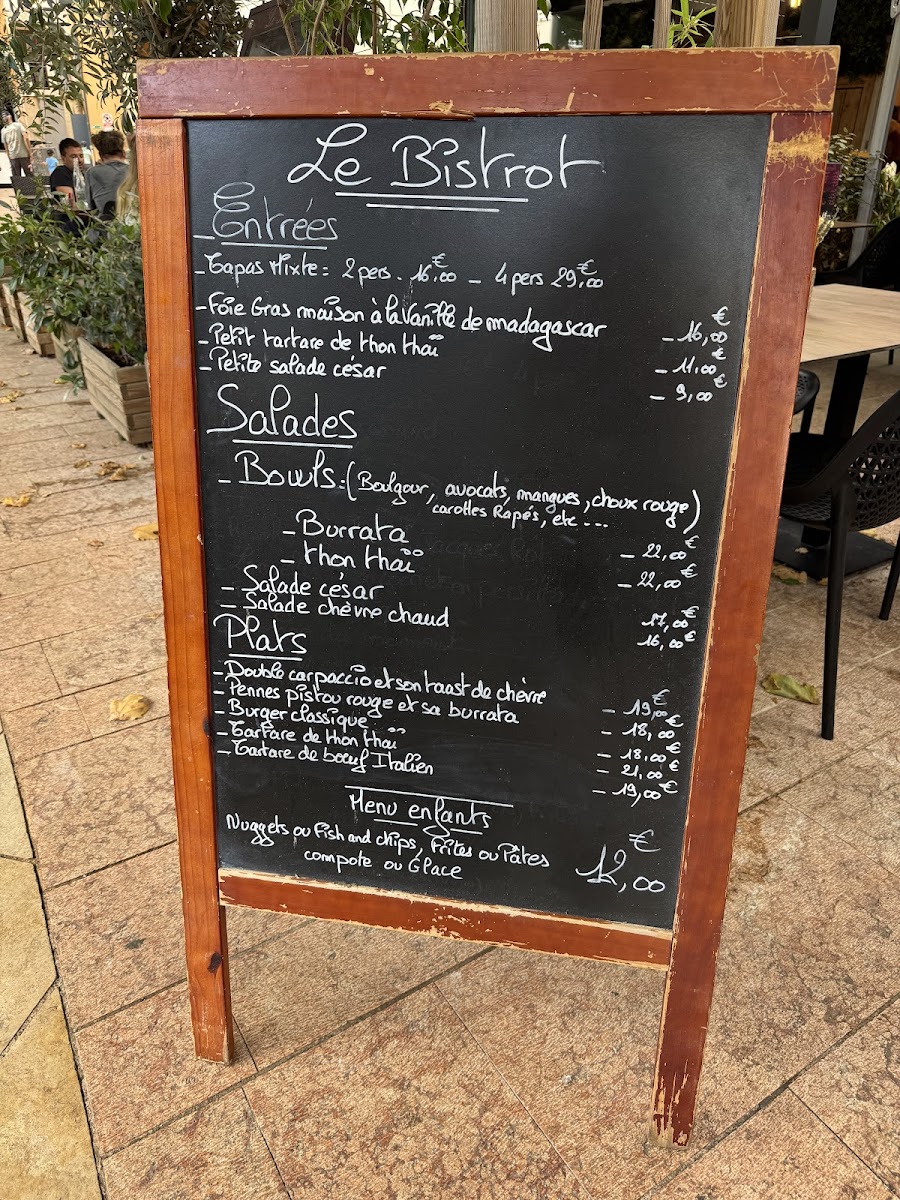 Le Bistrot
- Entrées
- Tapas Mixte = 2 pers - 16,00€ - 4 pers 29,00€
- Foie Gras maison à la vanille de madagascar - 16,00€
- Petit tartare de thon thaï - 11,00€
- Petite salade césar - 9,00€
Salades
- Bowls : (Boulgour, avocats, mangues, choux rouge)
carottes Rapés, etc...
- Burrata - 22,00€
- thon thaï - 22,00€
- Salade césar 17,00€
- Salade chèvre chaud 16,00€
Plats
- Double carpaccio et son toast de chèvre - 19,00€
- Pennes pistou rouge et sa burrata - 18,00€
- Burger classique - 18,00€
- Tartare de thon thaï - 21,00€
- Tartare de bœuf Italien - 19,00€
Menu enfants
Nuggets ou Fish and chips, Frites ou Pâtes 12,00€
compote ou Glace